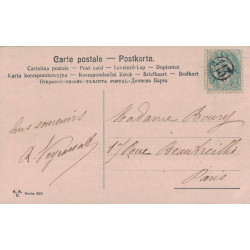 Carte postale – Postkarte.
Cartolina postale – Post card – Levelező-Lap – Dopisnice
Karta korespondencyjna – Korespondenční lístek – Briefkaart – Brefkort
Открытое письмо – TARJETA POSTAL – Дописна Карта
bons souvenirs
Madame Boury
17 Rue Beautreillis
Paris
Serie